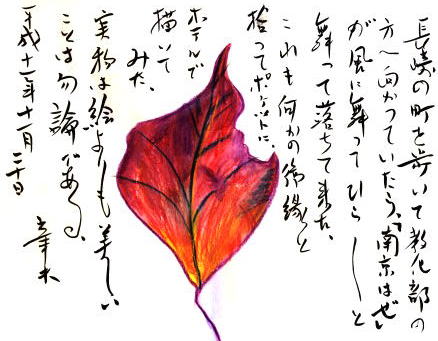 長崎の町を歩いて教化部の
方へ向かっていたら、「南京はぜ」
が風に舞ってひらーっと
舞って落ちて来た。
これも何かの御縁と
拾ってポケットに。
ホテルで
描いて
みた。
実物は絵よりも美しい
ことは勿論である。
平成十一年十一月二十日